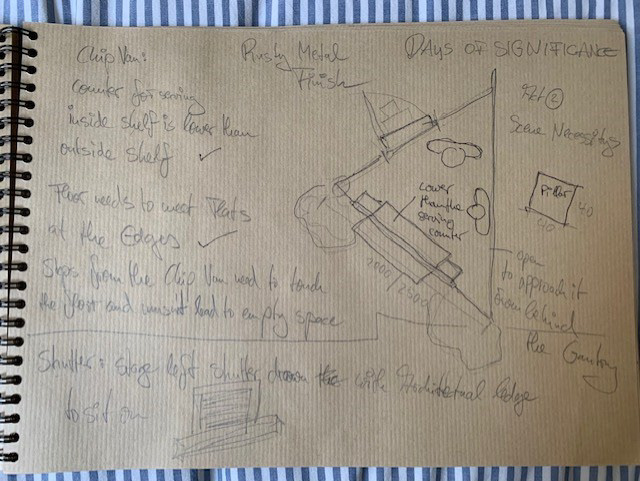 DAYS OF SIGNIFICANCE
Rusty Metal
Finish
Chip Van:
counter for serving
inside shelf is lower than
outside shelf ✓
Floor needs to meet Flats
at the Edges ✓
Steps from the Chip Van need to touch
the floor and mustn't lead to empty space
Shutter: stage left shutter down with Architectural ledge
to sit on
lower
than the
serving
counter
2000/2500
②
Scene Necessity
Pillar
40
40
open
to approach it
from behind
the Gantry